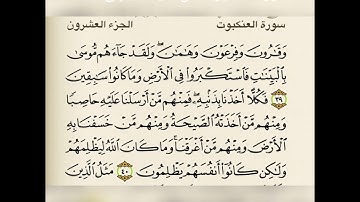 سورة العنكبوت
الجزء العشرون
وَقَٰرُونَ وَفِرْعَوْنَ وَهَٰمَٰنَ ۖ وَلَقَدْ جَآءَهُم مُّوسَىٰ
بِالْبَيِّنَٰتِ فَاسْتَكْبَرُوا۟ فِى الْأَرْضِ وَمَا كَانُوا۟ سَٰبِقِينَ
٣٩ فَكُلًّا أَخَذْنَا بِذَنۢبِهِۦ ۖ فَمِنْهُم مَّنْ أَرْسَلْنَا عَلَيْهِ حَاصِبًا
وَمِنْهُم مَّنْ أَخَذَتْهُ الصَّيْحَةُ وَمِنْهُم مَّنْ خَسَفْنَا بِهِ
الْأَرْضَ وَمِنْهُم مَّنْ أَغْرَقْنَا ۚ وَمَا كَانَ اللَّهُ لِيَظْلِمَهُمْ
وَلَٰكِن كَانُوٓا۟ أَنفُسَهُمْ يَظْلِمُونَ ٤٠ مَثَلُ الَّذِينَ